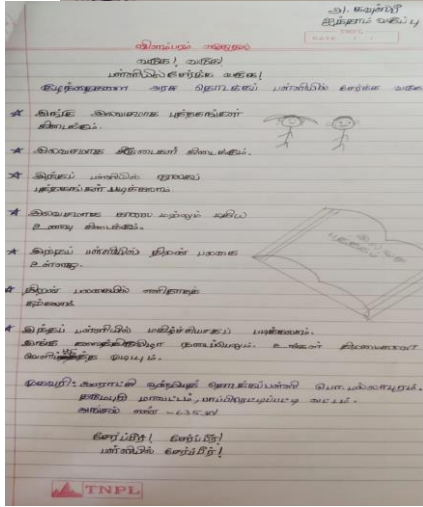 அ. கவுஸ்ரீ
ஐந்தாம் வகுப்பு
TNPL
DATE
விளம்பரம் எழுதுதல்
வருக! வருக!
பள்ளியில் சேர்க்க வருக!
குழந்தைகளை அரசு தொடக்கப் பள்ளியில் சேர்க்க வருக
★ இங்கு இலவசமாக புத்தகங்கள்
கிடைக்கும்.
★ இலவசமாக சீருடைகள் கிடைக்கும்.
★ இந்தப் பள்ளியில் நூலகப்
புத்தகங்கள் படிக்கலாம்.
★ இலவசமாக காலை மற்றும் மதிய
உணவு கிடைக்கும்.
★ இந்தப் பள்ளியில் திறன் பலகை
உள்ளது.
இலவச
புத்தகம்
★ திறன் பலகையில் எளிதாகக்
கற்கலாம்
★ இந்தப் பள்ளியில் மகிழ்ச்சியாகப் படிக்கலாம்.
இங்கு கலைத்திருவிழா நடைபெறும். உங்கள் திறமைகளை
வெளிப்படுத்த முடியும்.
முகவரி: ஊராட்சி ஒன்றியத் தொடக்கப்பள்ளி பொ.மல்லாபுரம்.
தருமபுரி மாவட்டம், பாப்பிரெட்டிப்பட்டி வட்டம்.
அஞ்சல் எண்
சேர்ப்பீர்! சேர்ப்பீர்!
பள்ளியில் சேர்ப்பீர்!
TNPL